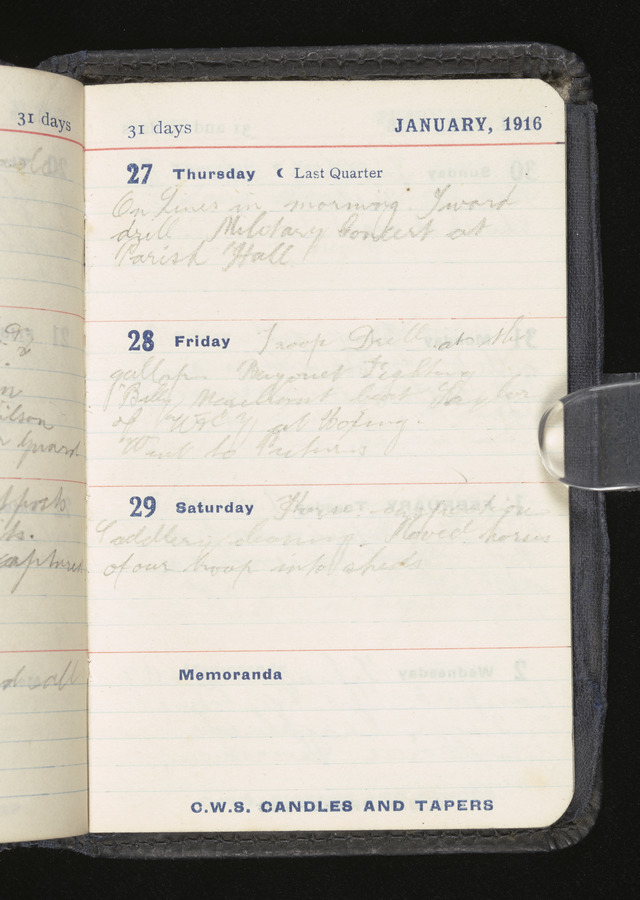 31 days
31 days
JANUARY, 1916
27 Thursday ☾ Last Quarter
On Lines in morning. Sword
drill Military Concert at
Parish Hall
28 Friday Troop Drill at the
gallop. Bayonet Fighting
(Billy) beat
of at Boxing.
Went to Pictures
29 Saturday
Saddlery cleaning. Moved horses
of our troop into sheds
Memoranda
C.W.S. CANDLES AND TAPERS
ilson
guard
captured